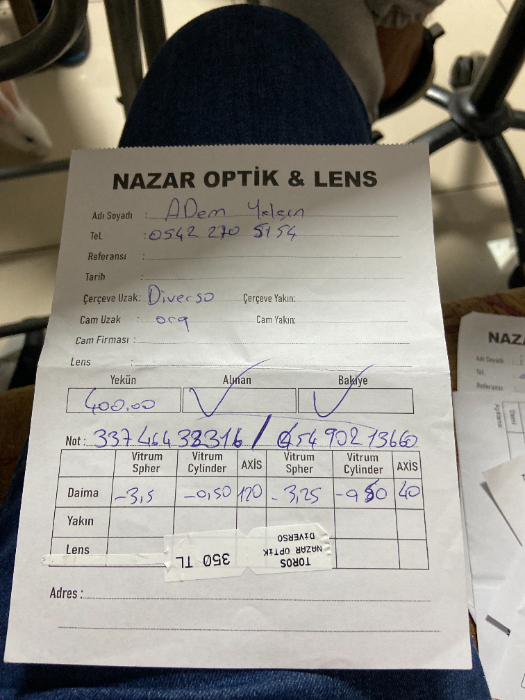 NAZAR OPTİK & LENS
Adı Soyadı : ADem Yalçın
Tel. : 0542 270 5154
Referansı :
Tarih :
Çerçeve Uzak: Diverso Çerçeve Yakın:
Cam Uzak : org Cam Yakın:
Cam Firması :
Lens :
Yekün Alınan Bakiye
400.00
Not : 33746438316 /
Vitrum Spher Vitrum Cylinder AXİS Vitrum Spher Vitrum Cylinder AXİS
Daima -3,5 -0,50 120 -3,25 40
Yakın
Lens
350 TL
TOROS
NAZAR OPTIK
DİVERSO
Adres :
NAZ
Adı Soyadı
Tel.
Referansı